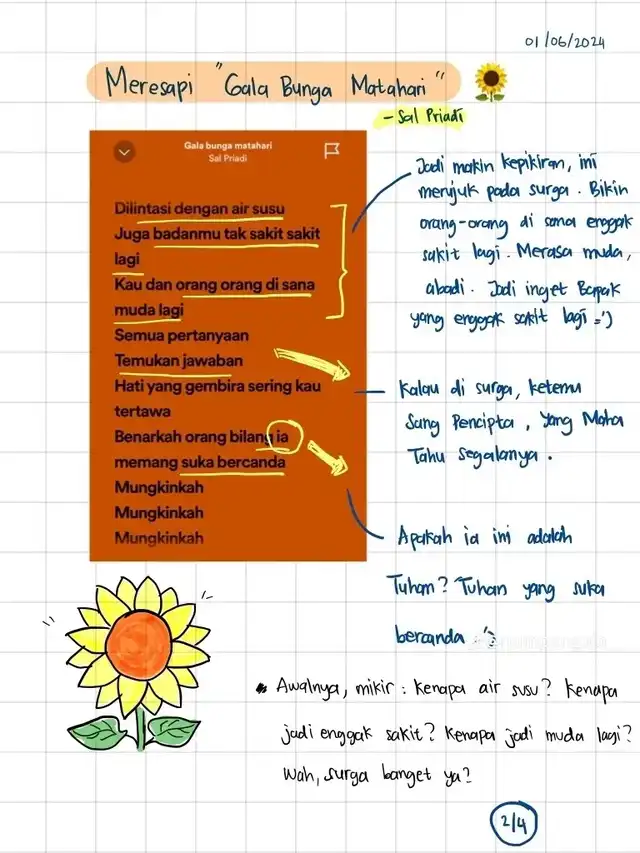 01/06/2024
Meresapi "Gala Bunga Matahari"
- Sal Priadi
Gala bunga matahari
Sal Priadi
Dilintasi dengan air susu
Juga badanmu tak sakit sakit
lagi
Kau dan orang orang di sana
muda lagi
Semua pertanyaan
Temukan jawaban
Hati yang gembira sering kau
tertawa
Benarkah orang bilang ia
memang suka bercanda
Mungkinkah
Mungkinkah
Mungkinkah
Jadi makin kepikiran, ini
merujuk pada surga. Bikin
orang-orang di sana enggak
sakit lagi. Merasa muda,
abadi. Jadi inget Bapak
yang enggak sakit lagi =')
Kalau di surga, ketemu
Sang Pencipta, Yang Maha
Tahu Segalanya.
Apakah ia ini adalah
Tuhan? Tuhan yang suka
bercanda :')
Awalnya, mikir: kenapa air susu? Kenapa
jadi enggak sakit? Kenapa jadi muda lagi?
Wah, surga banget ya?
2/4